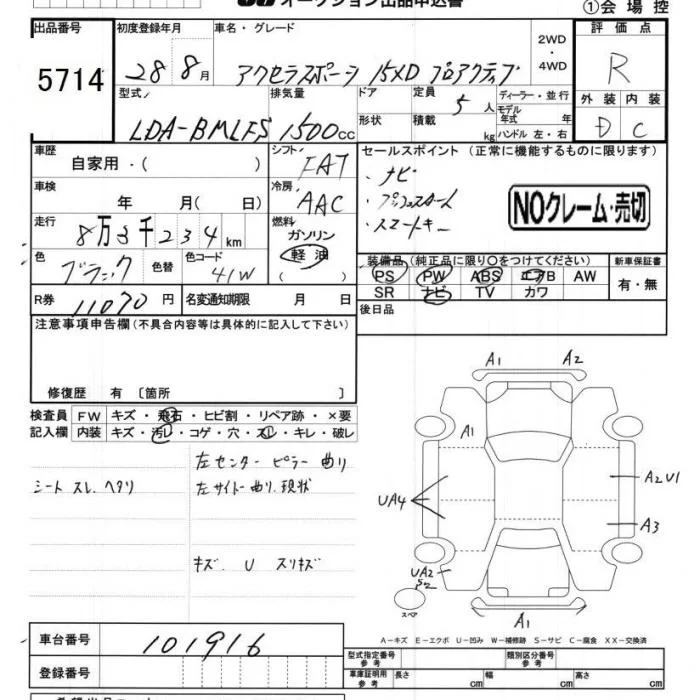 オークション出品申込書
①会場控
出品番号 初度登録年月 車名・グレード 2WD・4WD 評価点
5714 28 8月 アクセラスポーツ 15XD プロアクティブ R
型式 排気量 ドア 定員 5人 ディーラー・並行 外装 内装
LDA-BMLFS 1500cc 形状 積載 kg モデル年式 年 ハンドル 左・右 D C
車歴 自家用・( ) シフト FAT セールスポイント (正常に機能するものに限ります)
・ナビ
車検 年 月( 日) 冷房 AAC
・スマートキー
NOクレーム・売切
走行 8万3千234km 燃料 ガソリン 軽油 ( )
装備品 (純正品に限り○をつけてください) 新車保証書
色 ブラック 色替 色コード 41W PS PW ABS エアB AW 有・無
SR ナビ TV カワ
R券 11070円 名変通知期限 月 日 後日品
注意事項申告欄(不具合内容等は具体的に記入して下さい)
修復歴 有 〔箇所 〕
検査員 FW キズ・飛石・ヒビ割・リペア跡・×要
記入欄 内装 キズ・汚レ・コゲ・穴・スレ・キレ・破レ
左センターピラー曲リ
シートスレ、ヘタリ 左サイドー曲リ、現状
キズ、U スリキズ
A1 A2
A1
UA4 A2U1
A3
UA2
S2
スペア A1
A-キズ E-エクボ U-凹み W-補修跡 S-サビ C-腐食 XX-交換済
車台番号 101916
型式指定番号 参考 類別区分番号 参考
登録番号 車庫証明用 参考 長さ cm 幅 cm 高さ cm